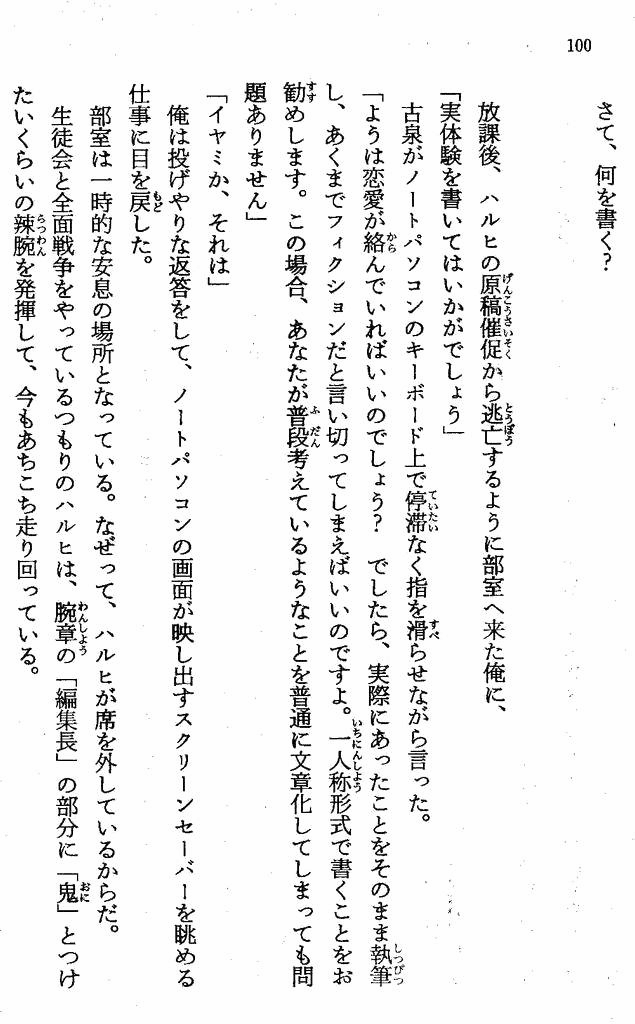 100
さて、何を書く?
放課後、ハルヒの原稿催促から逃亡するように部室へ来た俺に、
「実体験を書いてはいかがでしょう」
古泉がノートパソコンのキーボード上で停滞なく指を滑らせながら言った。
「ようは恋愛が絡んでいればいいのでしょう? でしたら、実際にあったことをそのまま執筆
し、あくまでフィクションだと言い切ってしまえばいいのですよ。一人称形式で書くことをお
勧めします。この場合、あなたが普段考えているようなことを普通に文章化してしまっても問
題ありません」
「イヤミか、それは」
俺は投げやりな返答をして、ノートパソコンの画面が映し出すスクリーンセーバーを眺める
仕事に目を戻した。
部室は一時的な安息の場所となっている。なぜって、ハルヒが席を外しているからだ。
生徒会と全面戦争をやっているつもりのハルヒは、腕章の「編集長」の部分に「鬼」とつけ
たいくらいの辣腕を発揮して、今もあちこち走り回っている。